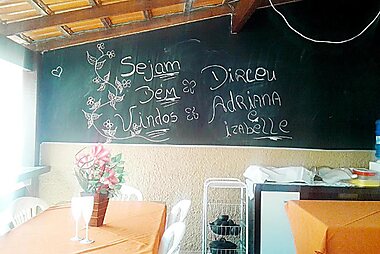 Sejam
Bém
Vindos
Dirceu
Adriana
e
izabelle